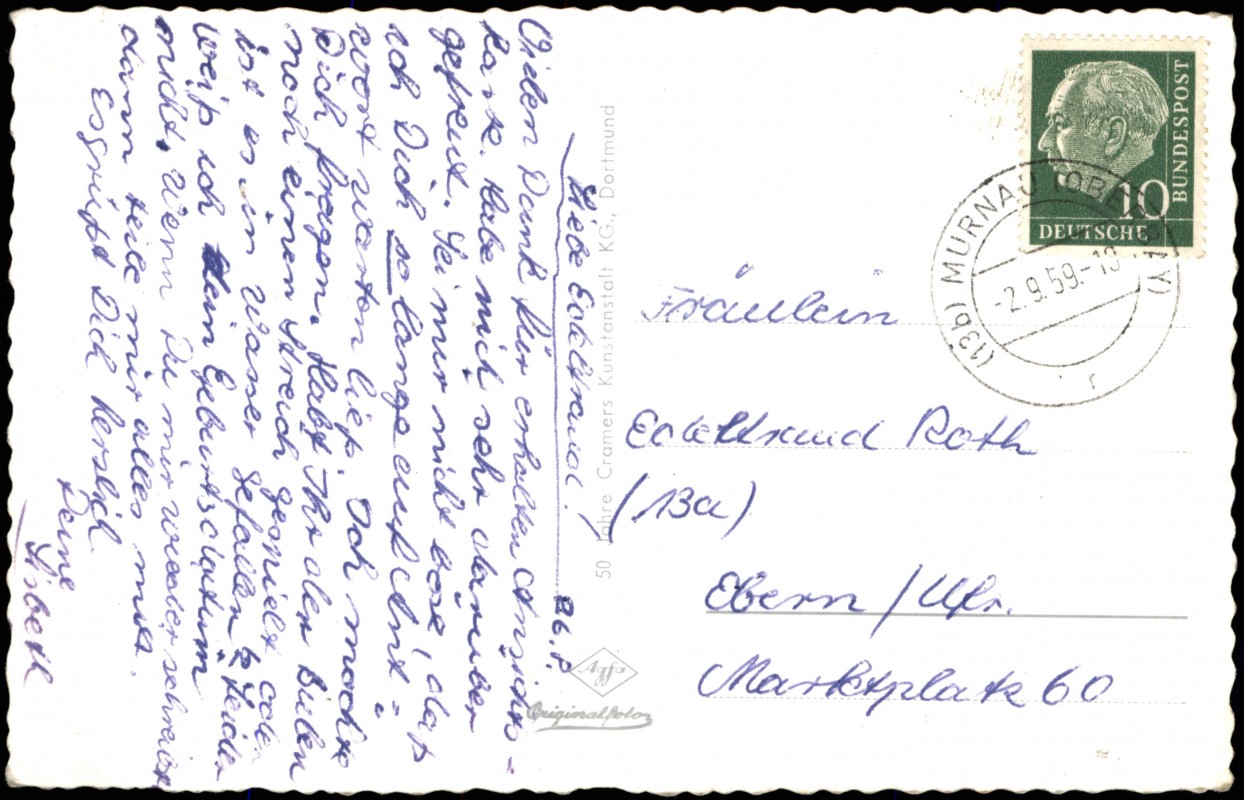 26.8.
Liebe Edeltraud!
Vielen Dank für erhaltene Ansichts-
karte. Habe mich sehr darüber
gefreut. Sei mir nicht böse, daß
ich Dich so lange auf Ant-
wort warten ließ. Ich möchte
Dich fragen. Habt Ihr den Buben
noch einen Streich gespielt oder
ist es in Wasser gefallen? Leider
weiß ich Dein Geburtsdatum
nicht. Wenn Du mir wieder schreibst
dann teile mir alles mit.
Es grüßt Dich herzlich
Deine
Lisbeth
50 Jahre Cramers Kunstanstalt KG., Dortmund
Agfa
Originalfoto
BUNDESPOST
10
DEUTSCHE
(13b) MURNAU (OBERBAY)
-2.9.59.-18
r
Fräulein
Edeltraud Roth
(13a)
Ebern/Ufr.
Marktplatz 60